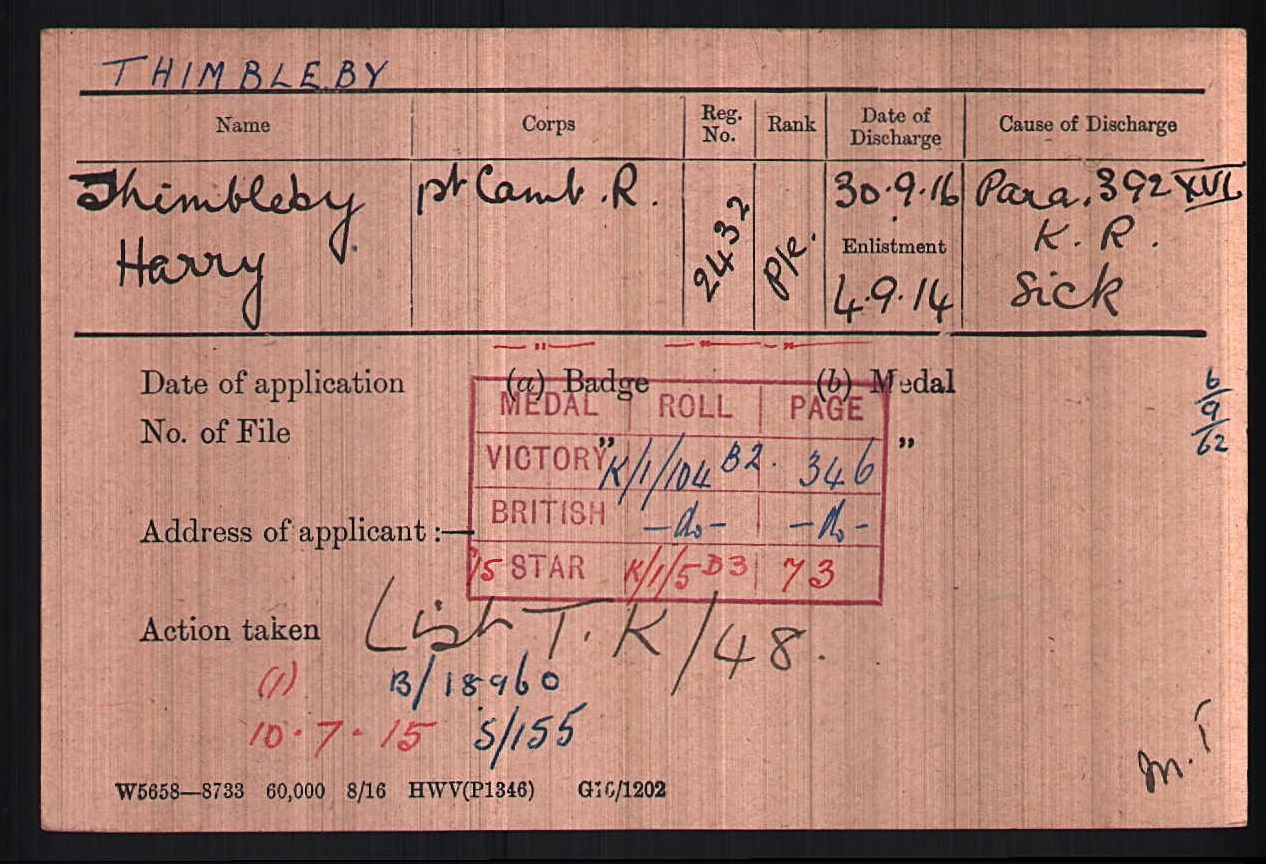 THIMBLEBY
Name Corps Reg. No. Rank Date of Discharge Cause of Discharge
Thimbleby Harry
1st Camb. R.
2432
Pte.
30.9.16
Enlistment
4.9.14
Para. 392 XVI
K. R.
Sick
— " — — " — " —
Date of application (a) Badge (b) Medal
No. of File " "
6/9/62
MEDAL ROLL PAGE
VICTORY K/1/104 B2. 346
BRITISH —do— —do—
'15 STAR K/1/5 B3 73
Address of applicant :—
Action taken List T.K/48.
(1) B/18960
10.7.15 S/155
W5658—8733 60,000 8/16 HWV(P1346) G16/1202